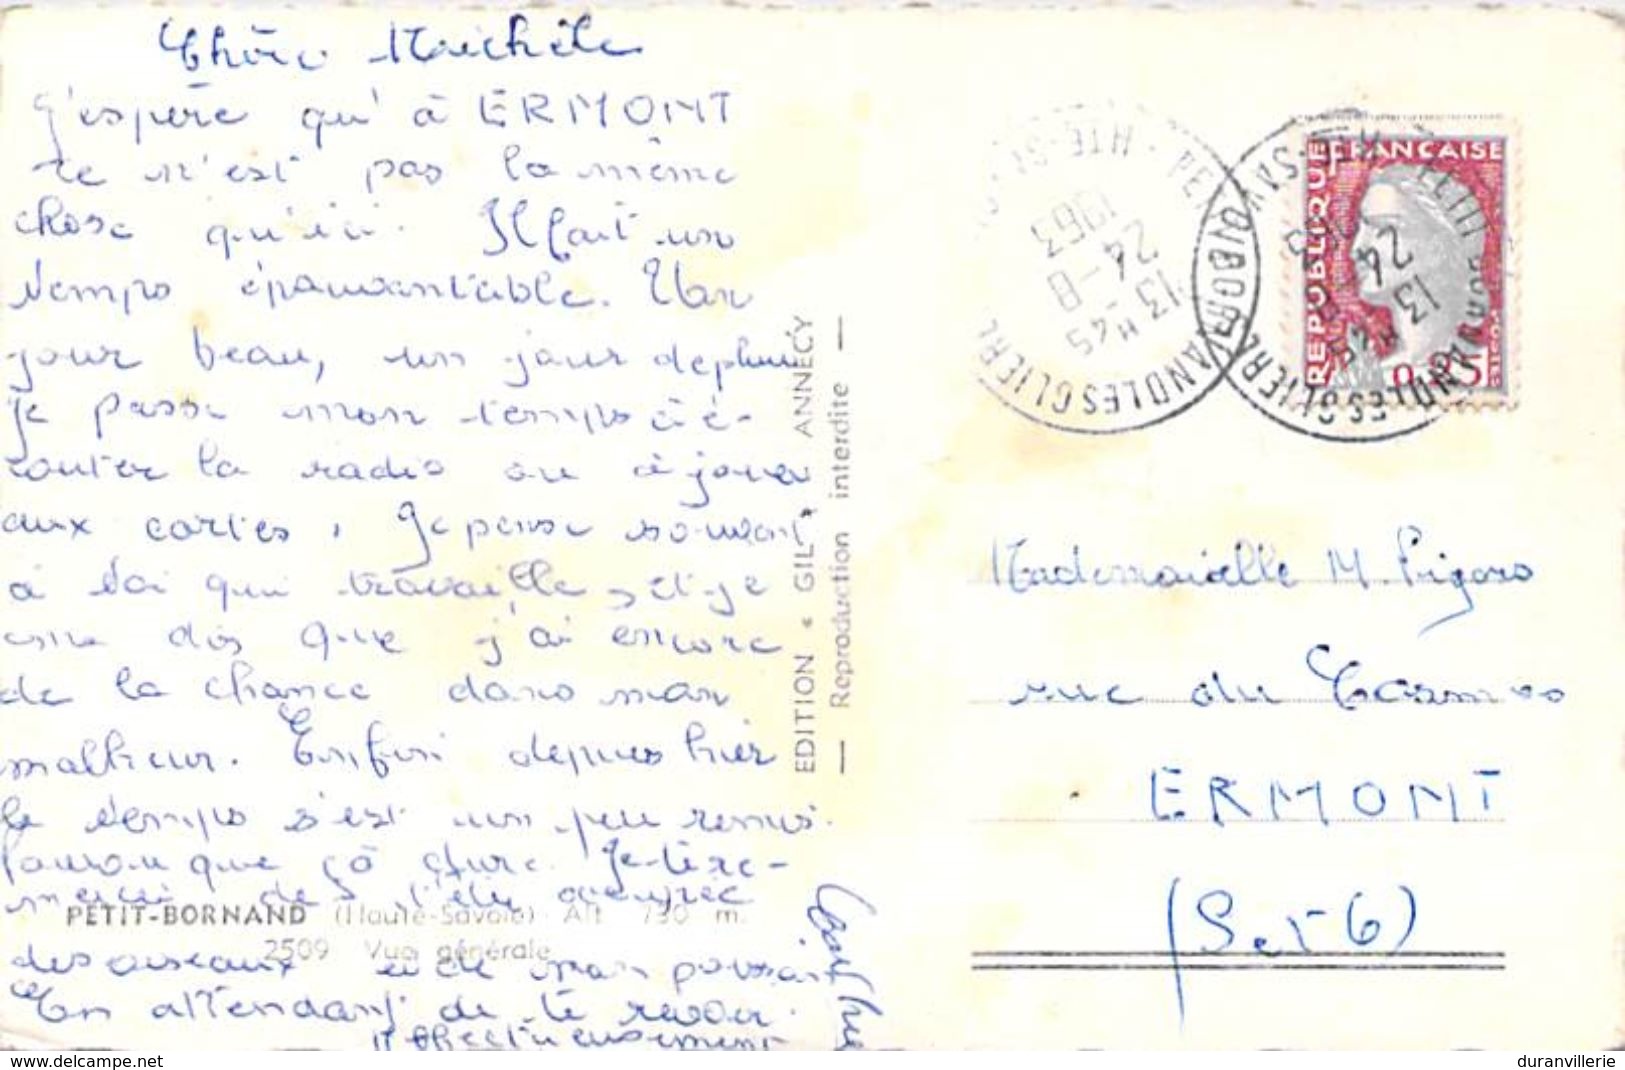 Chère Michèle
J'espère qu'à ERMONT
ce n'est pas la même
chose qu'ici. Il fait un
temps épouvantable. Un
jour beau, un jour de pluie
je passe mon temps à é-
couter la radio ou à jouer
aux cartes, Je pense souvent
à toi qui travaille, et je
me dis que j'ai encore
de la chance dans mon
malheur. Enfin depuis hier
le temps s'est un peu remis.
Pourvu que ça dure. Je te re-
mercie de t'être occupée
des oiseaux et de mon poisson
En attendant de te revoir.
Affectueusement
PETIT-BORNAND (Haute-Savoie) Alt. 730 m.
2509 Vue générale
EDITION « GIL » ANNECY
— Reproduction interdite —
REPUBLIQUE FRANÇAISE
0,25
PETIT BORNAND LES GLIERES
HTE-SAVOIE
13 H 45
24 - 8
1963
Mademoiselle M. Pigoro
rue du
ERMONT
(S. et O)
www.delcampe.net
duranvillerie